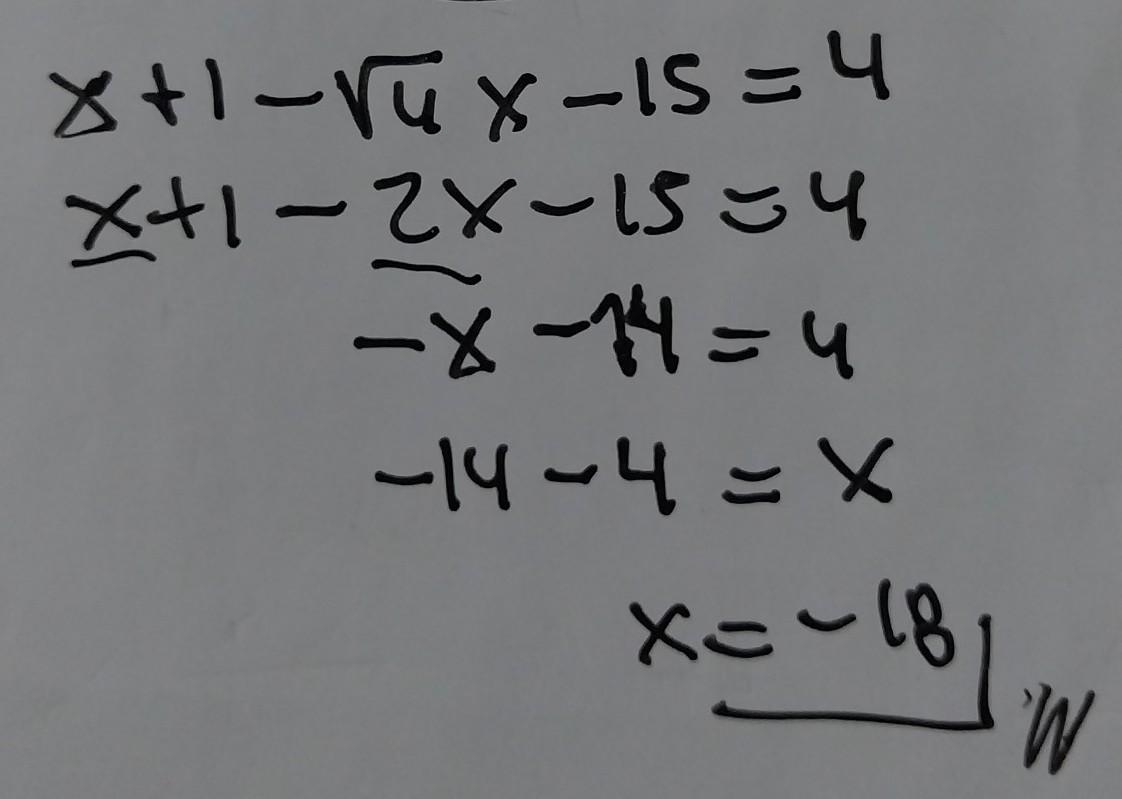 x+1-√4 x-15=4
x+1-2x-15=4
-x-14=4
-14-4=x
x=-18